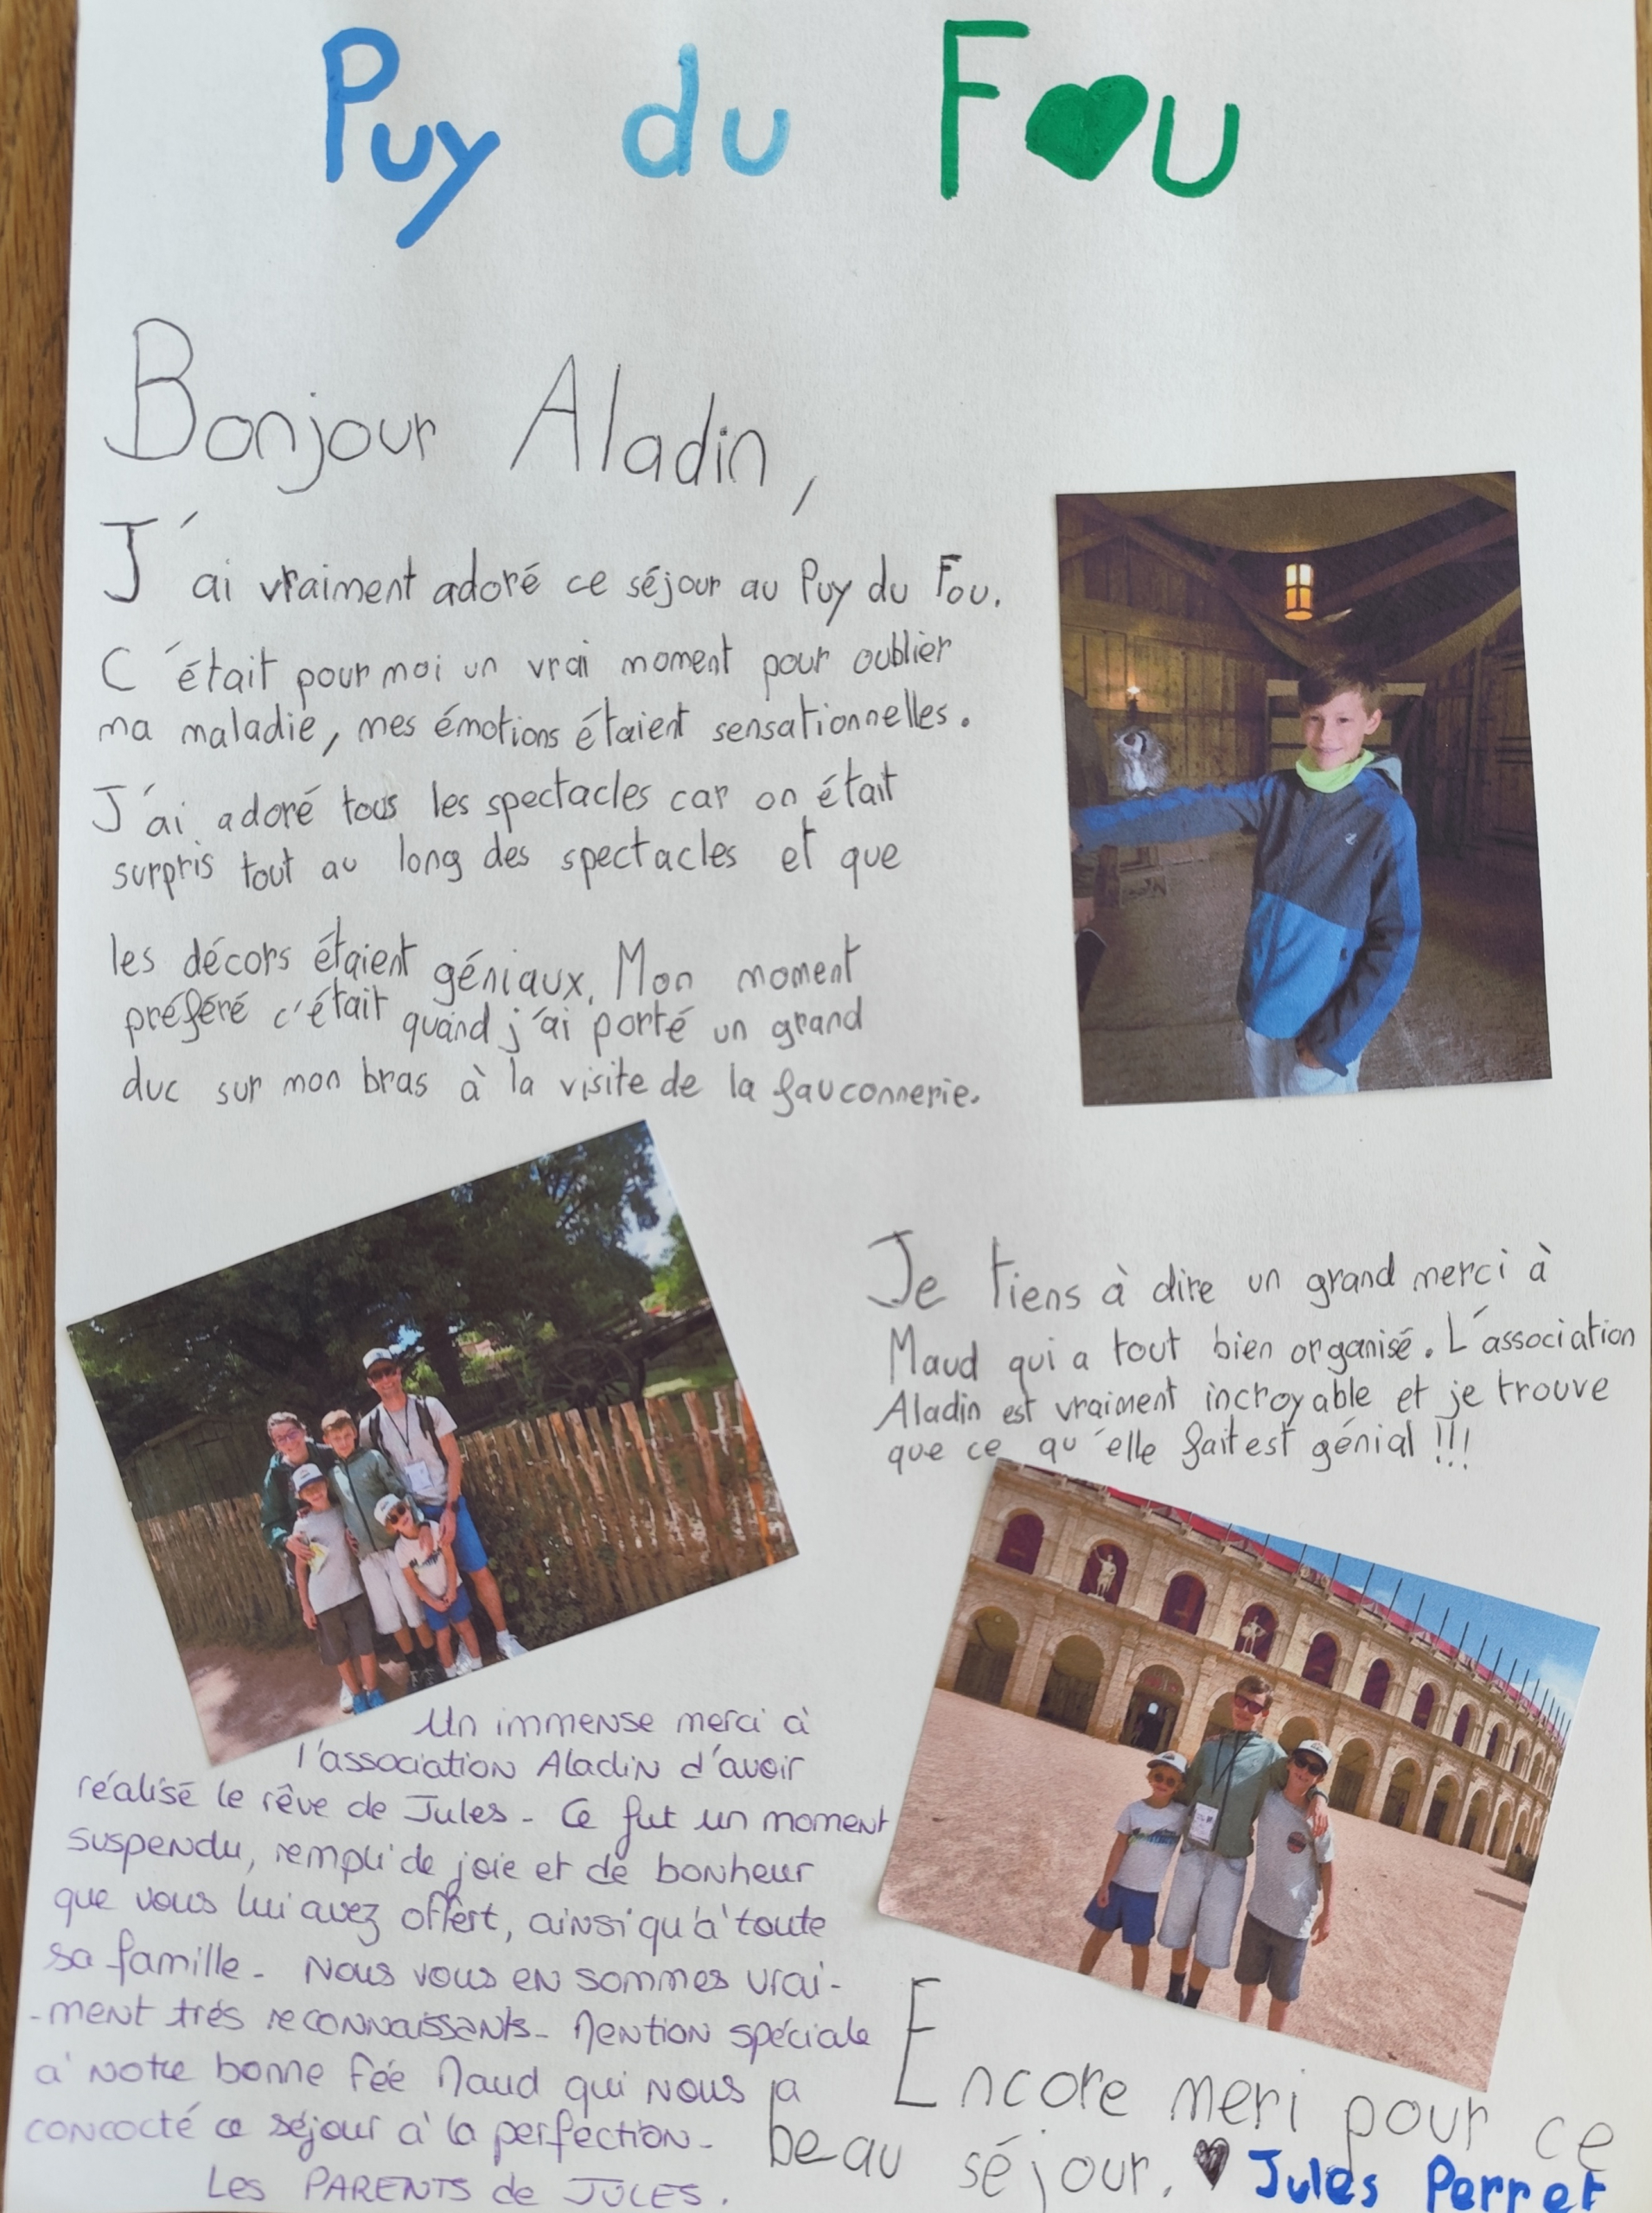 Puy du F♥u
Bonjour Aladin,
J'ai vraiment adoré ce séjour au Puy du Fou.
C'était pour moi un vrai moment pour oublier
ma maladie, mes émotions étaient sensationnelles.
J'ai adoré tous les spectacles car on était
surpris tout au long des spectacles et que
les décors étaient géniaux. Mon moment
préféré c'était quand j'ai porté un grand
duc sur mon bras à la visite de la fauconnerie.
Je tiens à dire un grand merci à
Maud qui a tout bien organisé. L'association
Aladin est vraiment incroyable et je trouve
que ce qu'elle fait est génial !!!
Un immense merci à
l'association Aladin d'avoir
réalisé le rêve de Jules - Ce fut un moment
suspendu, rempli de joie et de bonheur
que vous lui avez offert, ainsi qu'à toute
sa famille - Nous vous en sommes vrai-
-ment très reconnaissants - Mention spéciale
à notre bonne fée Maud qui nous a
concocté ce séjour à la perfection -
Les PARENTS de JULES.
Encore meri pour ce
beau séjour. ♥ Jules Perret